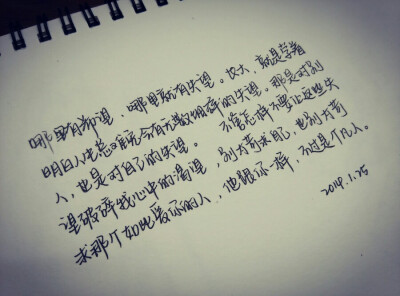 哪里有希望，哪里就有失望。长大，就是学着
明白人生总归会有无数细碎的失望。那是对别
人，也是对自己的失望。不管怎样不要让这些失
望破碎我心中的渴望，别太苛求自己，也别太苛
求那个如此爱你的人，他跟你一样，不过是个凡人。
2014.1.25